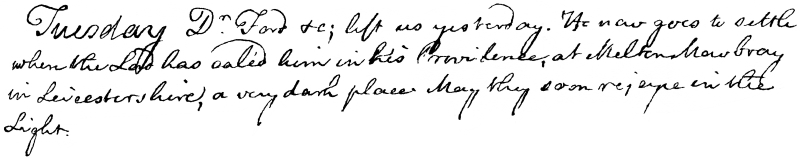 Tuesday Dr. Ford &c; left us yesterday. He now goes to settle
when the Lord has called him in his Providence, at Melton Mowbray
in Leicestershire, a very dark place May they soon rejoyce in the
Light.